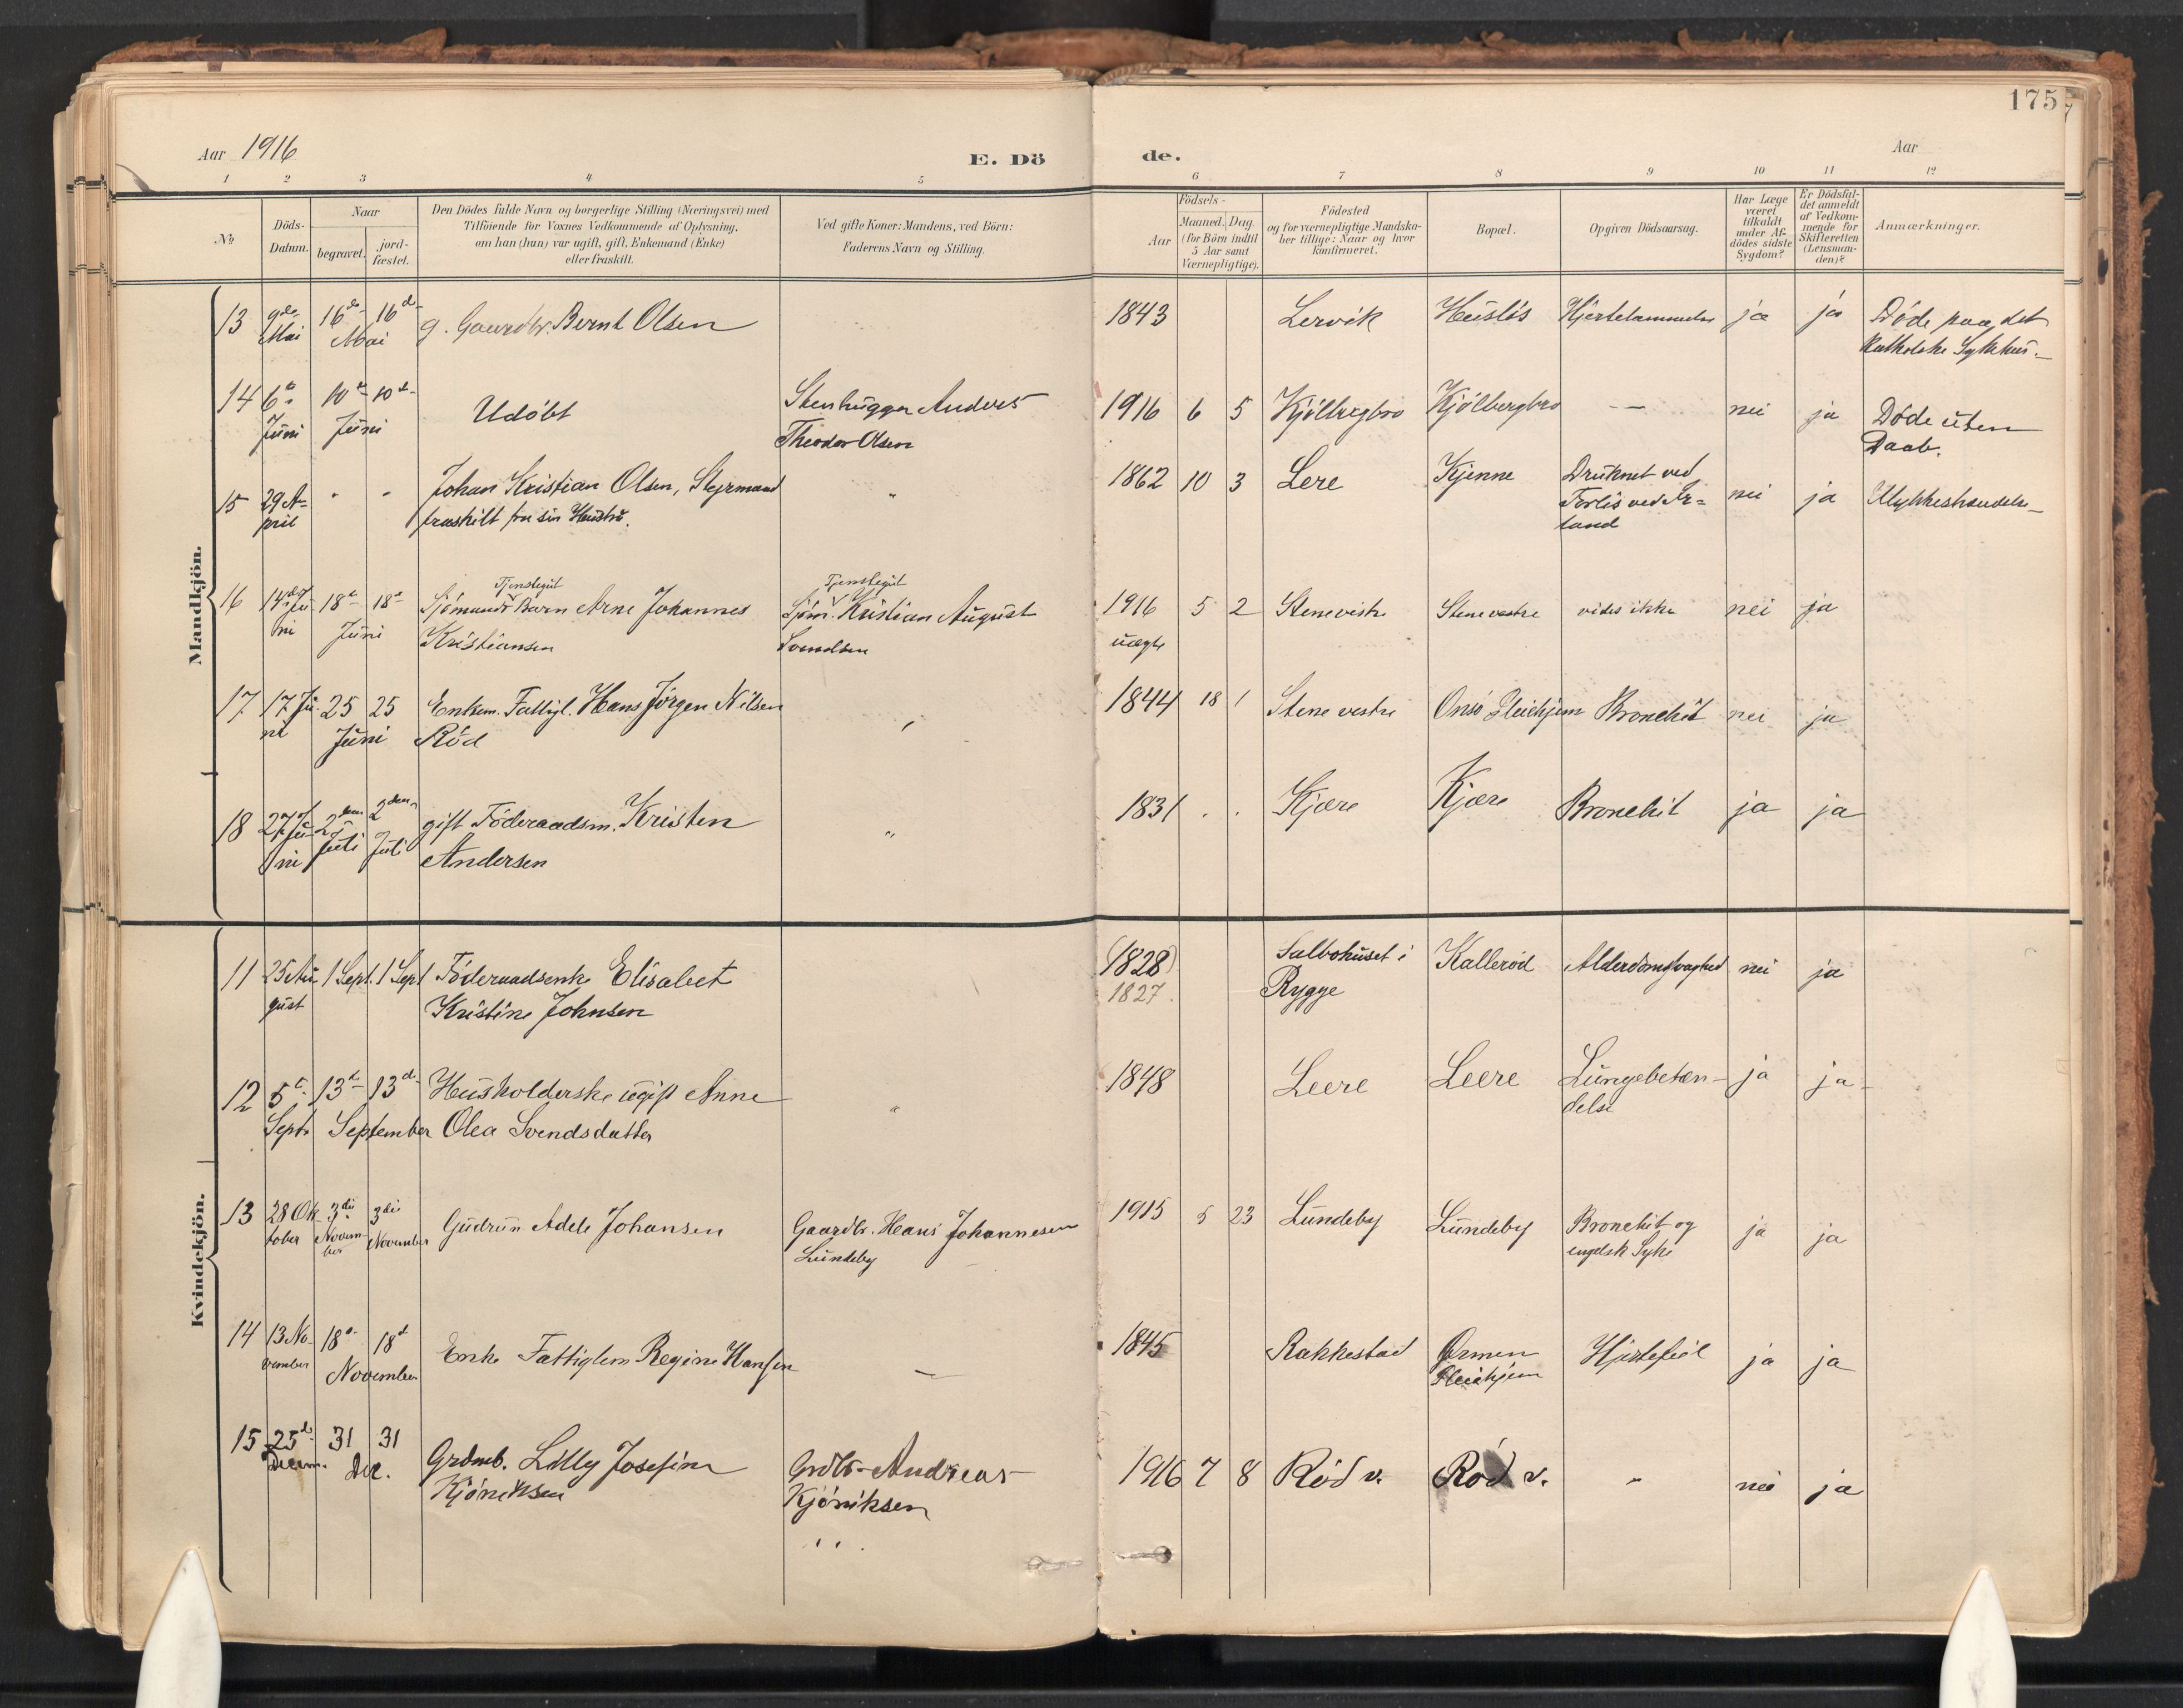 175
Aar 1916
E. Dö
de.
Aar
1 2 3 4 5 6 7 8 9 10 11 12
No
Döds-
Datum.
Naar
begravet.
jord-
fæstet.
Den Dödes fulde Navn og borgerlige Stilling (Næringsvei) med
Tilföiende for Voxnes Vedkommende af Oplysning,
om han (hun) var ugift, gift, Enkemand (Enke)
eller fraskilt.
Ved gifte Koner: Mandens, ved Börn:
Faderens Navn og Stilling.
Födsels-
Aar
Maaned. Dag.
(for Börn indtil
5 Aar samt
Værnepligtige).
Födested
og for værnepligtige Mandska-
ber tillige: Naar og hvor
konfirmeret.
Bopæl.
Opgiven Dödsaarsag.
Har Læge
været
tilkaldt
under Af-
dödes sidste
Sygdom?
Er Dödsfal-
det anmeldt
af Vedkom-
mende for
Skifteretten
(Lensman-
den)?
Anmærkninger.
Mandkjön.
13 9de Mai 16de 16d Mai g. Gaardbr. Bernt Olsen 1843 Lervik Huslös Hjertelammelse ja ja Döde paa det
Katholske Sykehus.
14 6te Juni 10d 10d Juni Udöbt Stenhugger Anders
Theodor Olsen 1916 6 5 Kjölbergbro Kjölbergbro — nei ja Döde uten
Daab.
15 29 April - - Johan Kristian Olsen, Styrmand
fraskilt fra sin Hustru. " 1862 10 3 Lere Kjenne Druknet ved
Forlis ved Ir=
land nei ja Ulykkeshændelse
16 14de Juni 18d 18d Juni Tjenstegut
Sjömands Barn Arne Johannes
Kristiansen Tjenstegut
Sjöm. Kristian August
Svendsen 1916 5 2 Stene vestre Stene vestre vides ikke nei ja
uægte
17 17 Juni 25 25 Juni Enkem. Fattigl. Hans Jörgen Nilsen
Röd " 1844 18 1 Stene vestre Onsö Pleiehjem Bronchit nei ja
18 27 Juni 2den Juli 2den Juli gift Föderaadsm. Kristen
Andersen " 1831 . . Kjære Kjære Bronchit ja ja
Kvindekjön.
11 25 August 1 Sept. 1 Sept Föderaadsenke Elisabet
Kristine Johnsen (1828)
1827 Salbohuset i
Rygge Kalleröd Alderdomsvaghed nei ja
12 5te Sept. 13d 13d September Husholderske ugift Anne
Olea Svendsdatter " 1848 Leere Leere Lungebeten-
delse ja ja
13 28 Oktober 3die November 3die November Gudrun Adele Johansen Gaardbr. Hans Johannesen
Lundeby 1915 5 23 Lundeby Lundeby Bronchit og
engelsk Syke ja ja
14 13 November 18d 18d November Enke Fattiglem Regine Hansen — 1845 Rakkestad Ørmen
Pleiehjem Hjertefeil ja ja
15 25d Decem. 31 31 Dec. Grdmb. Lilly Josefine
Kjöniksen Grdbr. Andreas
Kjöniksen 1916 7 8 Röd v. Röd v. - nei ja